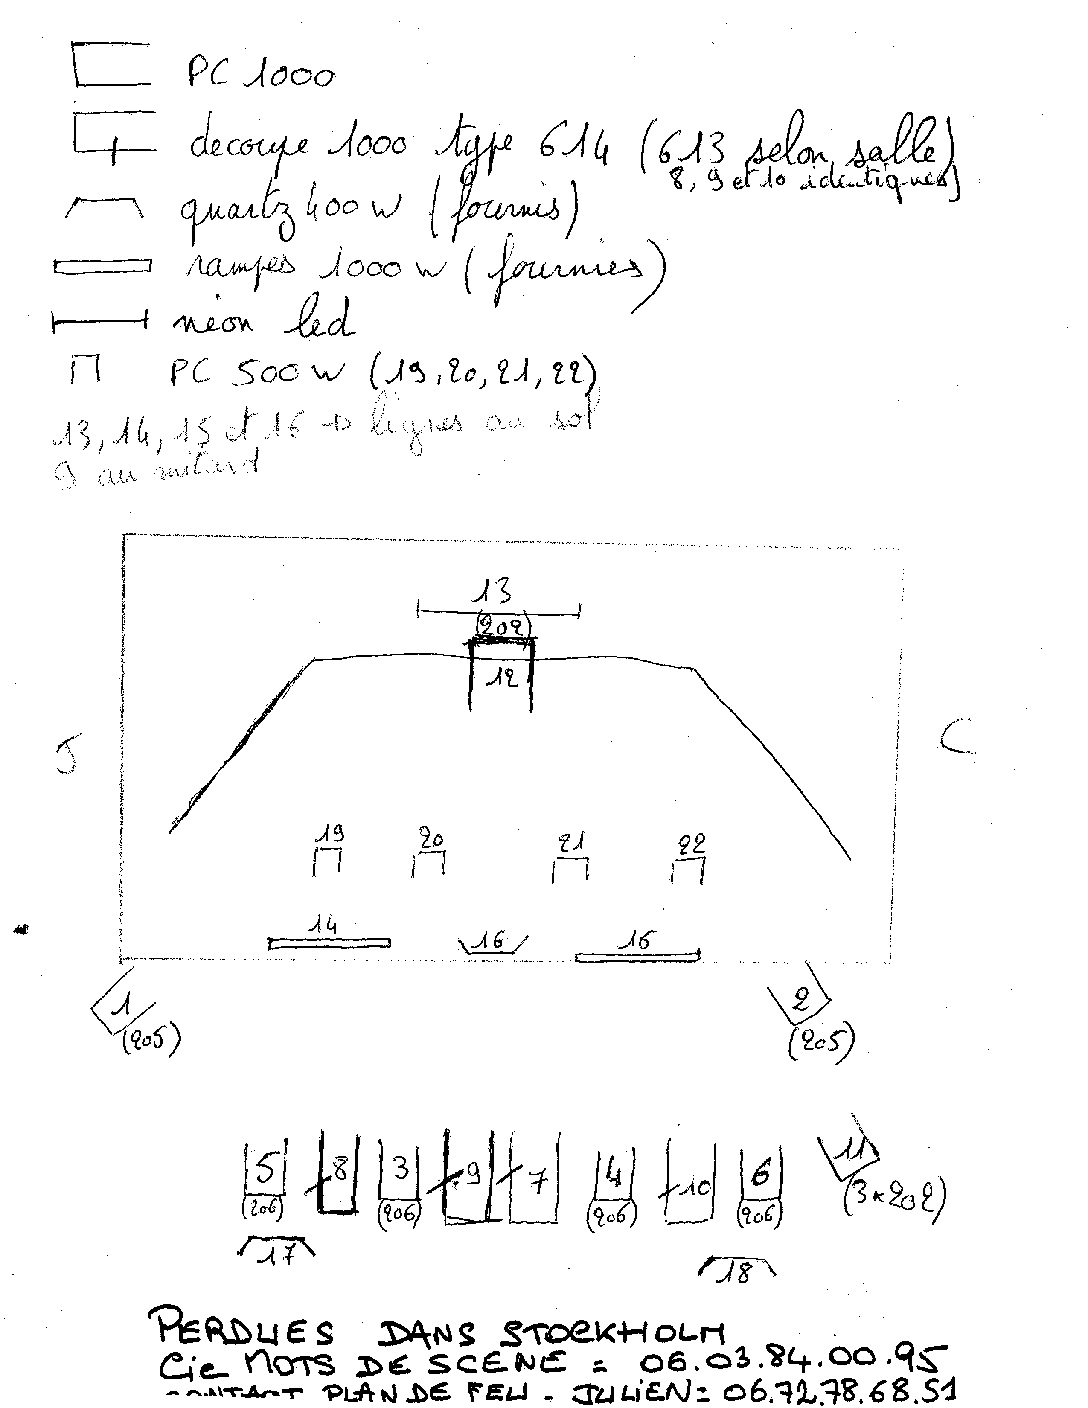 PC 1000
decoupe 1000 type 614 (613 selon salle)
8, 9 et 10 identiques)
quartz 400 w (fournis)
rampes 1000 w (fournies)
néon led
PC 500 w (19, 20, 21, 22)
13, 14, 15 et 16 → lignes au sol
9 au milieu
13
(202)
12
J
C
19 20 21 22
14 16 15
1 2
(205) (205)
5 8 3 9 7 4 10 6 11
(206) (206) (206) (206) (3 x 202)
17 18
PERDUES DANS STOCKHOLM
Cie MOTS DE SCENE = 06.03.84.00.95
CONTACT PLAN DE FEU - JULIEN = 06.72.78.68.51